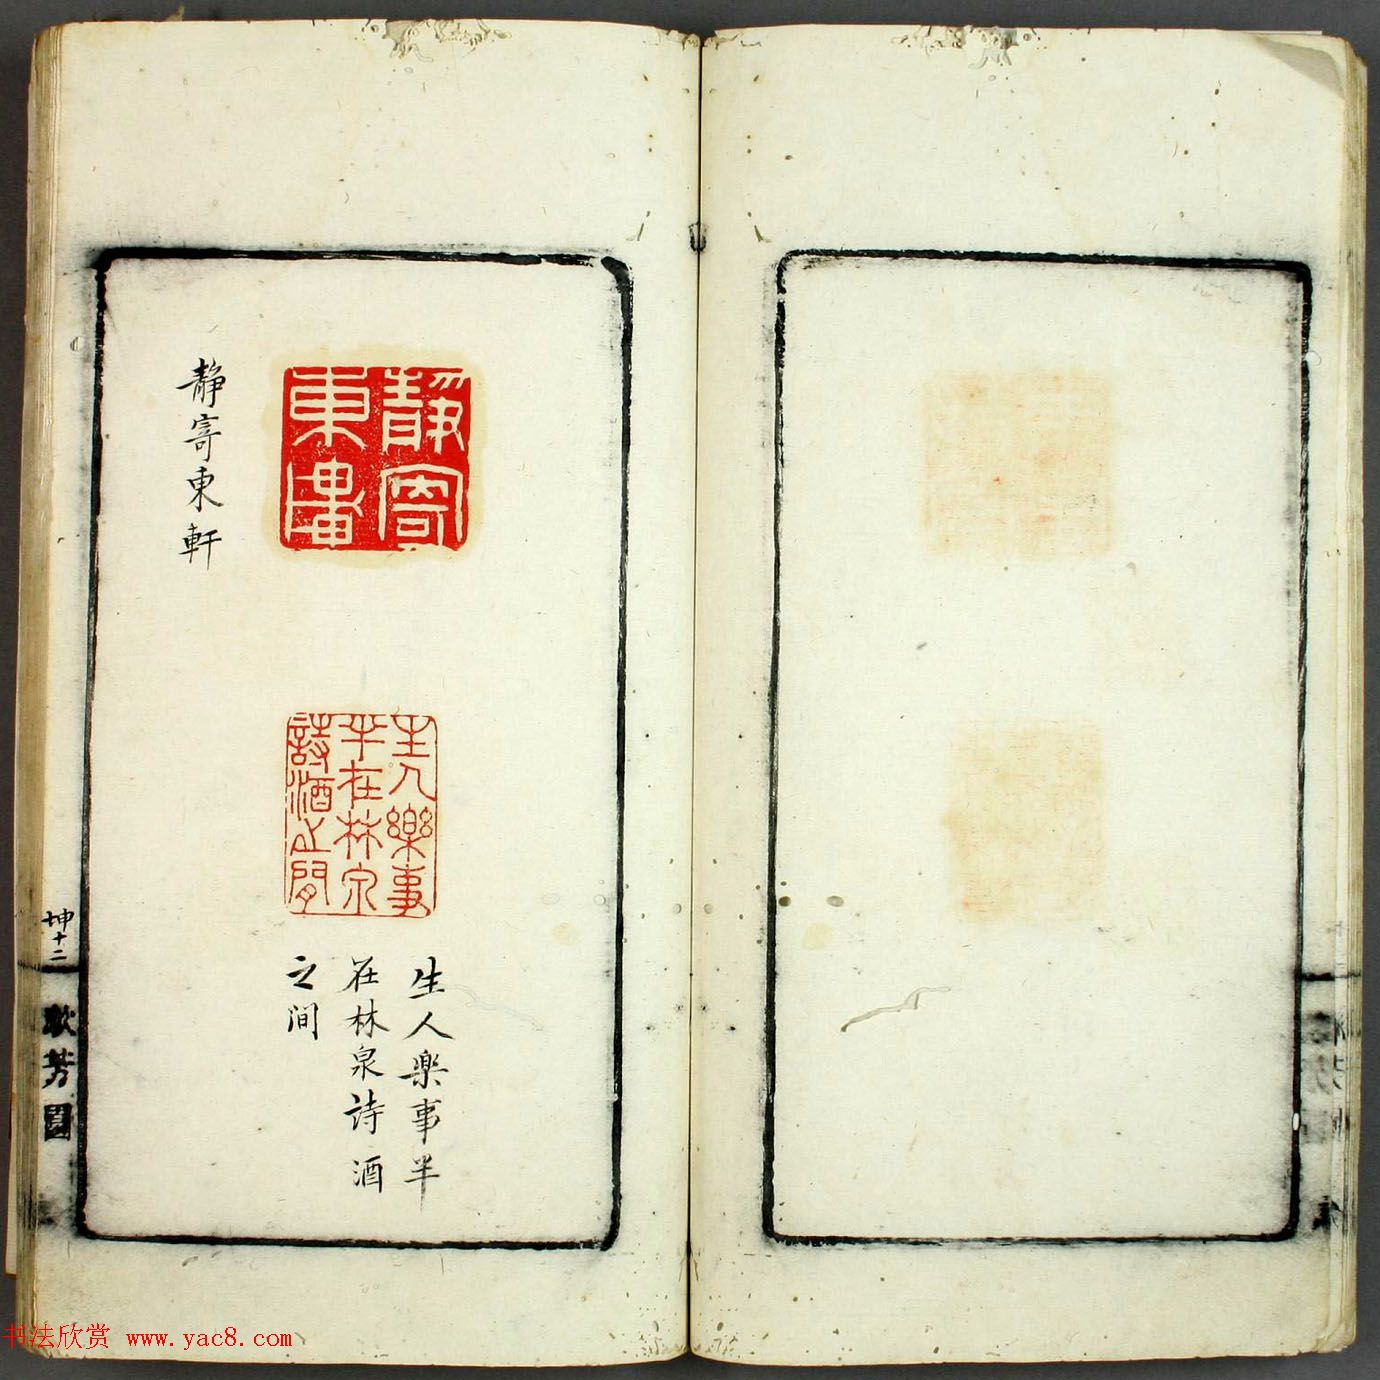 靜寄
東
生人樂事
半在林泉
詩酒之間
生人楽事半
在林泉詩酒
之间
静寄東軒
坤十二
芳
书法欣赏 www.yac8.com